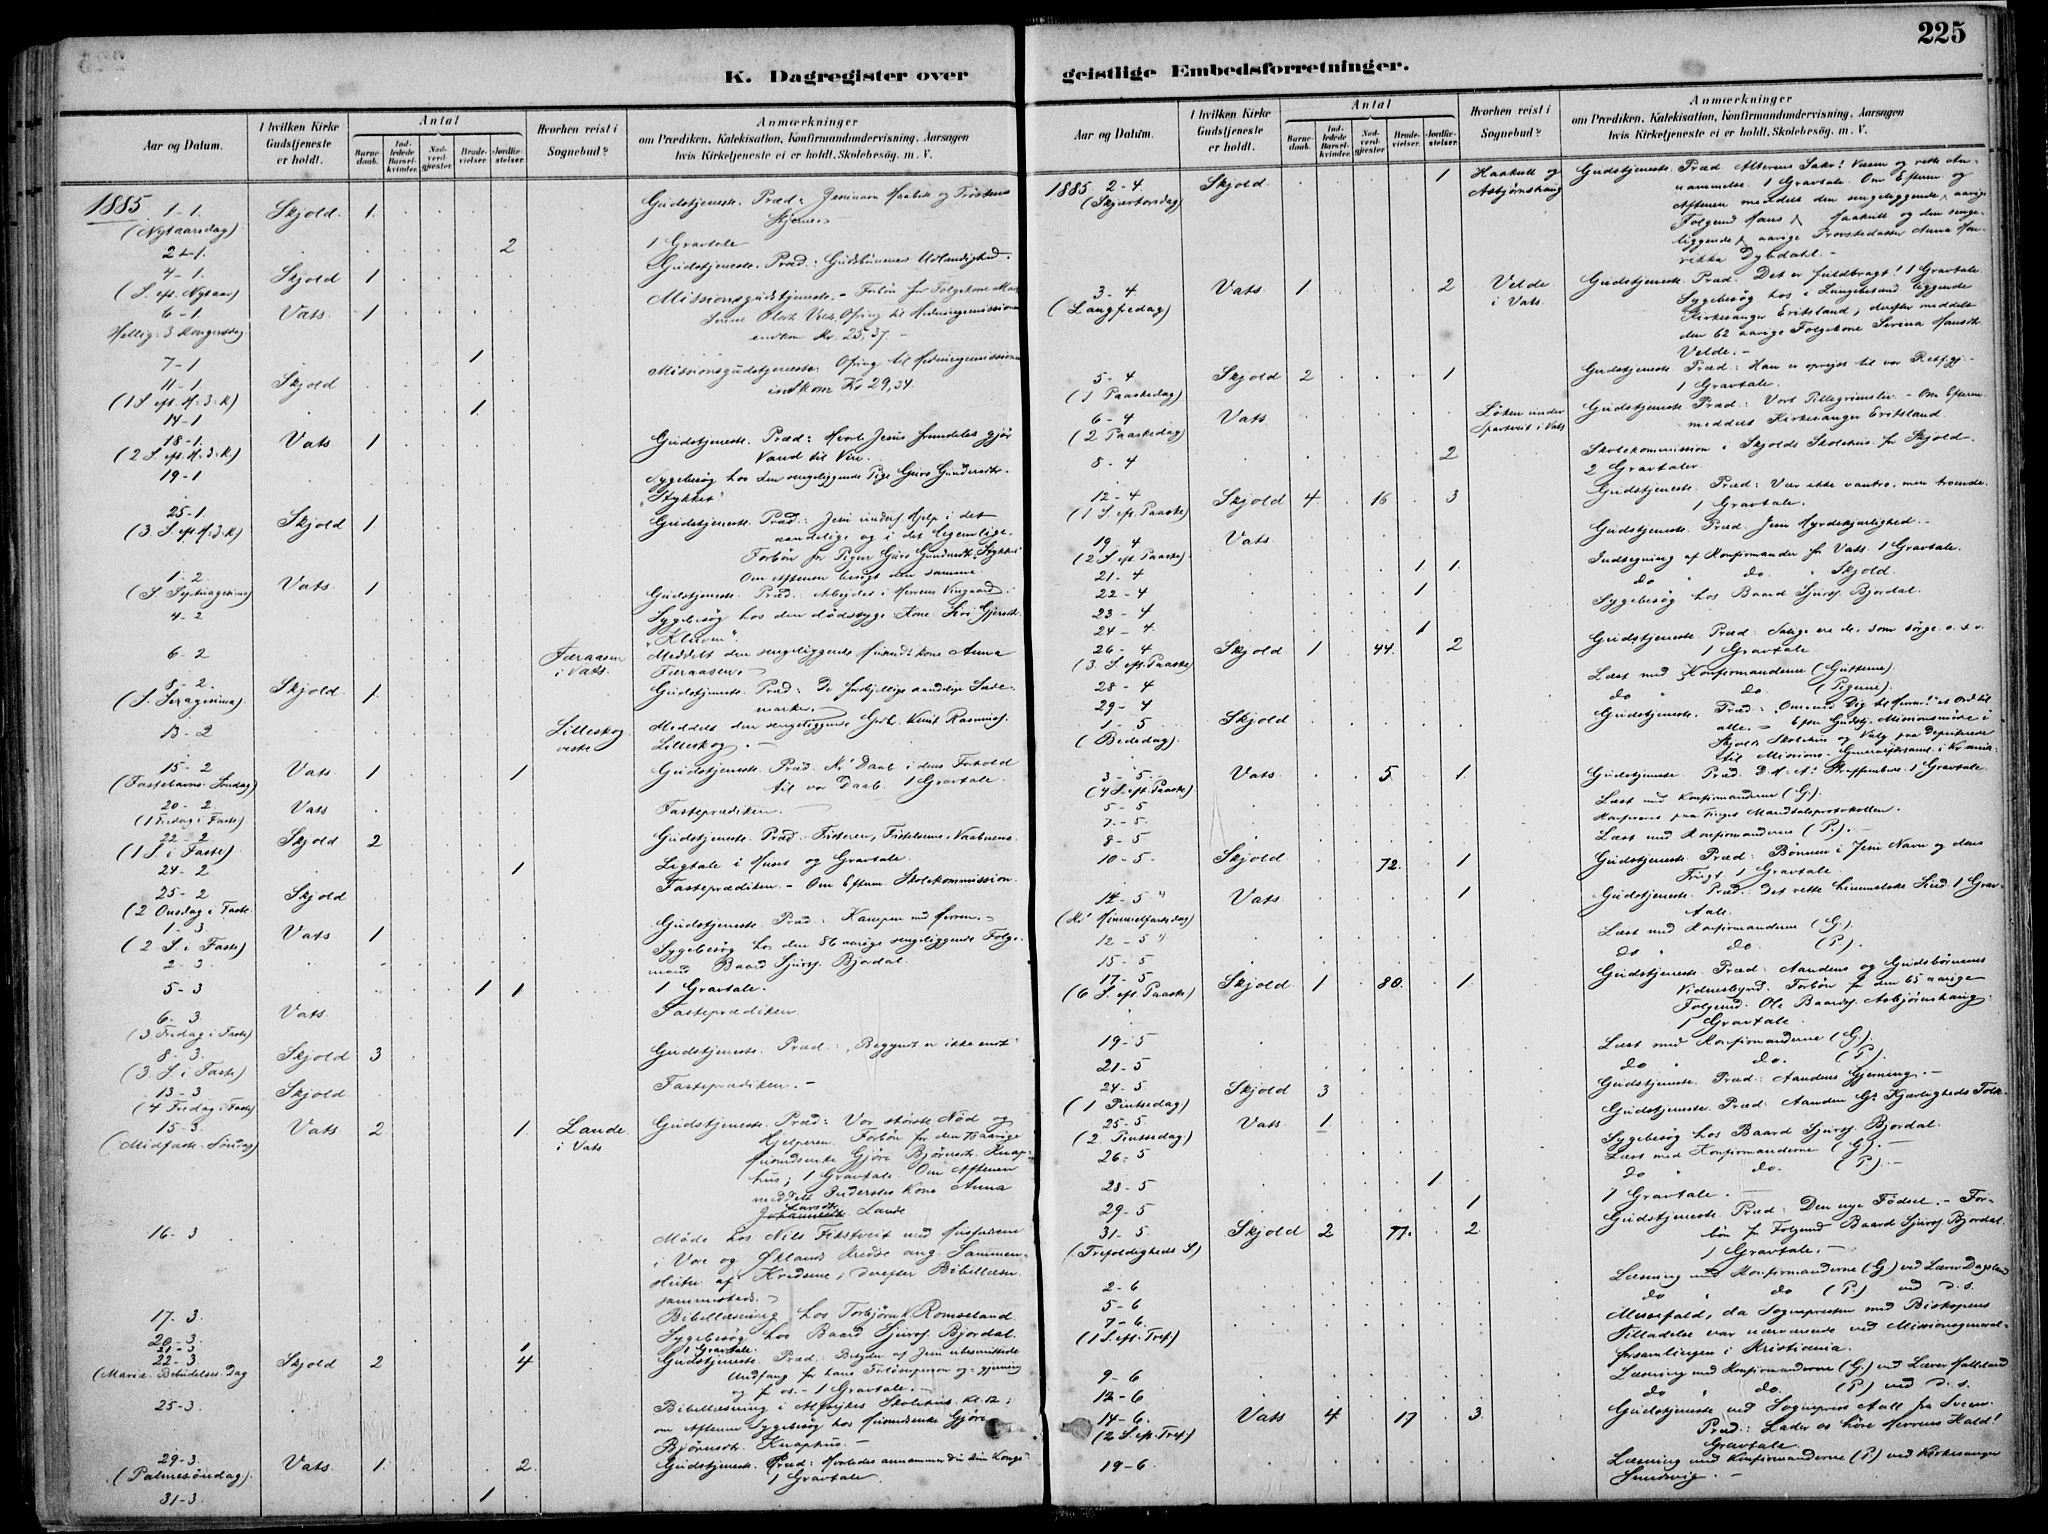 225
K. Dagregister over geistlige Embedsforretninger.
Aar og Datum. I hvilken Kirke Gudstjeneste er holdt. Antal Barnedaab. Indledede Barselkvinder. Nadverdgjester Brudevielser. Jordfæstelser. Hvorhen reist i Sognebud? Anmærkninger om Prædiken, Katekisation, Konfirmandundervisning, Aarsagen hvis Kirketjeneste ei er holdt, Skolebesøg. m. V.
1885 1-1. Skjold. 1. Gudstjeneste. Præd:
(Nytaarsdag)
2-1. 2 1 Gravtale
4-1. Skjold 1 Gudstjeneste. Præd: Gudsbørnenes Udlændighed.
(S. eft. Nytaar)
6-1. Vats 1 Missionsgudstjeneste. - Forbøn for Folgekone
Hellig 3 Kongersdag
endkom Kr. 25,37. -
7-1 1
11-1. Skjold Missionsgudstjeneste. Ofring til Hedningemissionen
(1 S. eft. H. 3. K) indkom Kr 29,34.
14-1 1.
18-1. Vats 1 Gudstjeneste. Præd: Hvorl. Jesus fremdeles gjør
(2 S. eft. H. 3. K) Vand til Vin.
19-1 Sygebesøg hos den sengeliggende Pige Guro Gundersdt.
"Stykket"
25-1. Skjold 1 Gudstjeneste. Præd.: Jesu underf. Hjelp i det
(3. S. eft H. 3. K) aandelige og i det legemlige.
Forbøn for Pigen Guro Gundersdt. Stykket
Om eftenen besøgt den samme.
1-2. Vats 1 Gudstjeneste. Præd: Arbejdet i Herrens Vingaard.
(S. Septuagesima)
4-2 Sygebesøg hos den dødssyge Kone Siri Gjersdt.
"Kleven".
6-2 Færaasen i Vats. Meddelt den sengeliggende Husmdskone Anna
Færaasen.
8-2. Skjold 1. Gudstjeneste. Præd: De forskjellige aandelige Sædemarker.
(S. Sexagesima)
13-2 Lilleskog Meddelt den sengeliggende Grdb. Knut Rasmuss.
Lilleskog. -
15-2 Vats 1 1 Gudstjeneste. Præd. Kr' Daab i dens Forhold
(Fastelavns Søndag) til vor Daab. 1 Gravtale.
20-2 Vats Fasteprædiken
(1 Fredag i Faste)
22-2 Skjold 2 Gudstjeneste. Præd. Fristeren, Fristelserne, Vaabnene.
(1 S. i Faste)
24-2 1 Ligtale i Huset og Gravtale.
25-2 Skjold Fasteprædiken - Om Efterm. Skolekommission.
(2 Onsdag i Faste
1-3 Vats 1 Gudstjeneste. Præd: Kampen med Herren.
(2 S. i Faste)
2-3. Sygebesøg hos den 86 aarige sengeliggende Folgemand Baard Sjurs. Bjordal.
5-3 1 1 1 Gravtale.
6-3. Vats. Fasteprædiken
(3. Fredag i Faste)
8-3. Skjold 3 Gudstjeneste. Præd: "Begyndt er ikke endt"
(3. S. i Faste)
13-3 Skjold. Fasteprædiken. -
(4 Fredag i Faste)
15-3. Vats 2 1. Lande i Vats Gudstjeneste. Præd: Vor største Nød og
(Midfaste Søndag) Hjelperen. Forbøn for den 78 aarige
Husmdsenke Gjøre Bjørnsdt. Knaphus; 1 Gravtale. Om Aftenen
meddelt Inderstes Kone Anna
Larsdt. Lande
16-3 Møde hos Nils Fikstveit med Husfædrene
i Vore og Øklands Kredse ang. Sammenslutn. af Kredsene; derefter Bibellæsn.
sammesteds.
17-3. Bibellæsning hos Torbjørn Romseland.
20-3. Sygebesøg hos Baard Sjurs. Bjordal.
21-3 1 1 Gravtale.
22-3 Skjold 2 4 Gudstjeneste. Præd: Betydn. af Jesu ubesmittede
(Mariæ Bebudelses Dag Undfang. for hans Frelsesperson og -gjerning
og for os. - 1 Gravtale.
25-3. Bibellæsning i Alviks Skolehus. Kl. 12;
om Aftenen Sygebesøg hos Husmdsenke Gjøre
Bjørnsdt. Knaphus. -
29-3. Vats. 1. 2. Gudstjeneste. Præd: Hvorledes annammer du din Konge
(Palmesøndag) 1 Gravtale.
31-3. 1
Aar og Datum. I hvilken Kirke Gudstjeneste er holdt. Antal Barnedaab. Indledede Barselkvinder. Nadverdgjester Brudevielser. Jordfæstelser. Hvorhen reist i Sognebud? Anmærkninger om Prædiken, Katekisation, Konfirmandundervisning, Aarsagen hvis Kirketjeneste ei er holdt, Skolebesøg. m. V.
1885. 2-4. Skjold 1 Haakull og Asbjørnshaug Gudstjeneste. Præd Alterens Sakr! Væsen og rette Annammelse. 1 Gravtale. Om Efterm og
(Skjærtorsdag) Aftenen meddelt den sengeliggende aarige
Folgemd Hans Haakull og den sengeliggende aarige Provstedatter Anna
Dybdahl. -
3-4 Vats 1 2 Velde i Vats Gudstjeneste. Præd: Det er fuldbragt! 1 Gravtale
(Langfredag) Sygebesøg hos i Lungebetænd. liggende
Kirkesanger Eritsland; derefter meddelt
den 62 aarige Folgekone Serina Hansdt.
Velde. -
5-4 Skjold 2 1 Gudstjeneste Præd: Han er oprejst til vor Retfg.
(1 Paaskedag) 1 Gravtale.
6-4 Vats. Løken under Spartveit i Vats Gudstjeneste. Præd: Vort Pillegrimsliv - Om Efterm.
(2 Paaskedag) meddelt Kirkesanger Eritsland.
8-4 2 Skolekommission i Skjolds Skolehus for Skjold.
2 Gravtaler
12-4 Skjold 4. 16 3 Gudstjeneste. Præd: Vær ikke vantro, men troende.
(1 S. eft. Paaske) 1 Gravtale.
19-4 Vats. Gudstjeneste. Præd. Jesu Hyrdekjærlighed. -
(2 S. eft Paaske)
21-4 1 1. Indtegning af Konfirmander for Vats. 1 Gravtale.
22-4 1 do " do. " Skjold.
23-4 Sygebesøg hos Baard Sjurs. Bjordal.
24-4. 1
26-4 Skjold 1 44. 2 Gudstjeneste. Præd: Salige ere de, som sørge o.s.v.
(3. S. eft. Paaske) 1 Gravtale
28-4 Læst med Konfirmanderne (Gutterne)
29-4 do " do (Pigerne).
1-5 Skjold Gudstjeneste. Præd: "Omvend Dig til Herren!" et Ord til
(Bededag) alle. - Efter Gudstj. Missionsmøde i
Skjolds Skolehus og Valg paa Deputerede
til Missions-Generalforsaml. i Kr.ania.
3-5. Vats. 5. 1. Gudstjeneste Præd. D. H. A! Straffembede. 1 Gravtale.
(4 S. eft. Paaske)
5-5 Læst med Konfirmanderne (G.)
7-5. Konference paa Tinget Mandtalsprotokollen.
8-5 Læst med Konfirmanderne (P.). -
10-5. Skjold 72. 1 Gudstjeneste Præd: Bønnen i Jesu Navn og dens
Frugt. 1 Gravtale.
14-5 " Vats. 1 Gudstjeneste. Præd: det rette himmelske Sind. 1 Gravtale.
(Kr' Himmelfartsdag)
12-5 " Læst med Konfirmanderne (G.)
15-5 do " do (P).
17-5 Skjold 1 80. 1 Gudstjeneste. Præd: Aandens og Gudsbørnenes
(6 S. eft. Paaske) Vidnesbyrd. Forbøn for den 65 aarige
Folgemd. Ole Baards. Asbjørnshaug.
1 Gravtale.
19-5 Læst med Konfirmanderne (G.)
21-5 do " do. (P).
24-5 Skjold 3 Gudstjeneste. Præd: Aandens Gjerning. -
(1 Pintsedag)
25-5. Vats. 1. Gudstjeneste. Præd. Aanden Gs Kjærligheds Tolk.
(2. Pintsedag)
26-5 Sygebesøg hos Baard Sjurs. Bjordal.
Læst med Konfirmanderne (G). -
28-5 1 do " do. (P). -
29-5 1 1 Gravtale. -
31-5. Skjold 2 77. 2. Gudstjeneste. Præd: Den nye Fødsel. - Forbøn for Folgemd Baard Sjurs. Bjordal.
(Trefoldigheds S) 1 Gravtale. -
2-6 Læsning med Konfirmanderne (G.) ved Lærer Dagsland
5-6 do " do (P.) ved d. s.
7-6. Messefald, da Sognepresten med Biskopens
(1 S. eft. Tref) Tilladelse var nærværende ved Missionsgeneralforsamlingen i Kristiania.
9-6 Læsning med Konfirmanderne (G.) ved Lærer
12-6 do " do. (P) ved d. s.
14-6. Vats 4. 17 3. Gudstjeneste ved Sognepres Aall fra Sveen.
(2 S. eft. Tref) Præd: Lader os høre Herrens Kald!
Gravtale.
19-6. Læsning med Konfirmanderne (P.) ved Kirkesanger